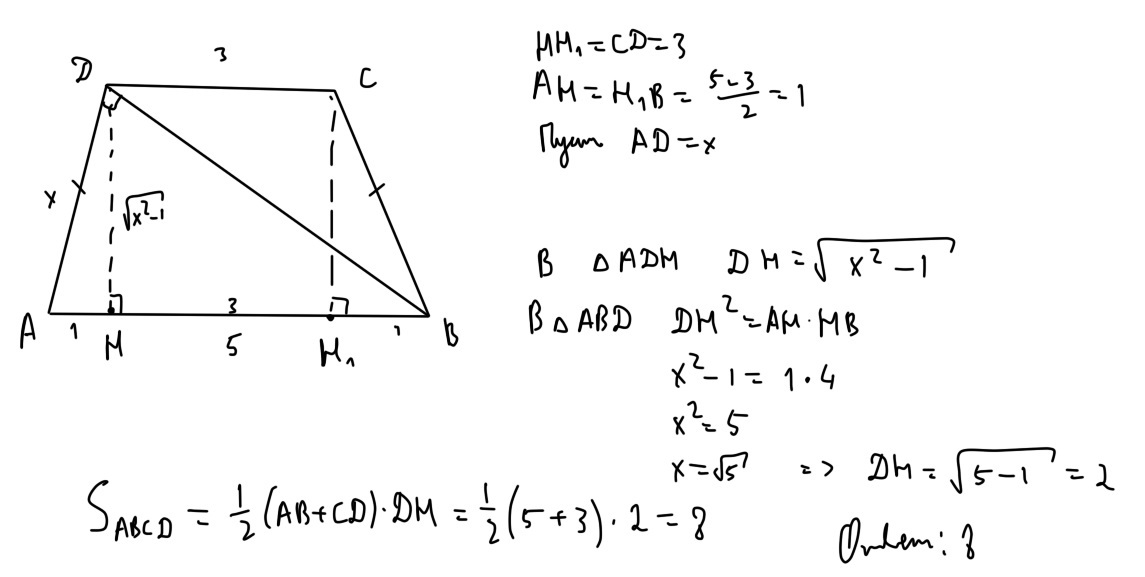 D
3
C
x
√(x²-1)
A
1
H
3
5
H₁
1
B
HH₁ = CD = 3
AH = H₁B = (5-3)/2 = 1
Пусть AD = x
В △ADH DH = √(x² - 1)
В △ABD DH² = AH · HB
x² - 1 = 1 · 4
x² = 5
x = √5 => DH = √(5-1) = 2
S_ABCD = 1/2 (AB+CD) · DH = 1/2 (5+3) · 2 = 8
Ответ: 8